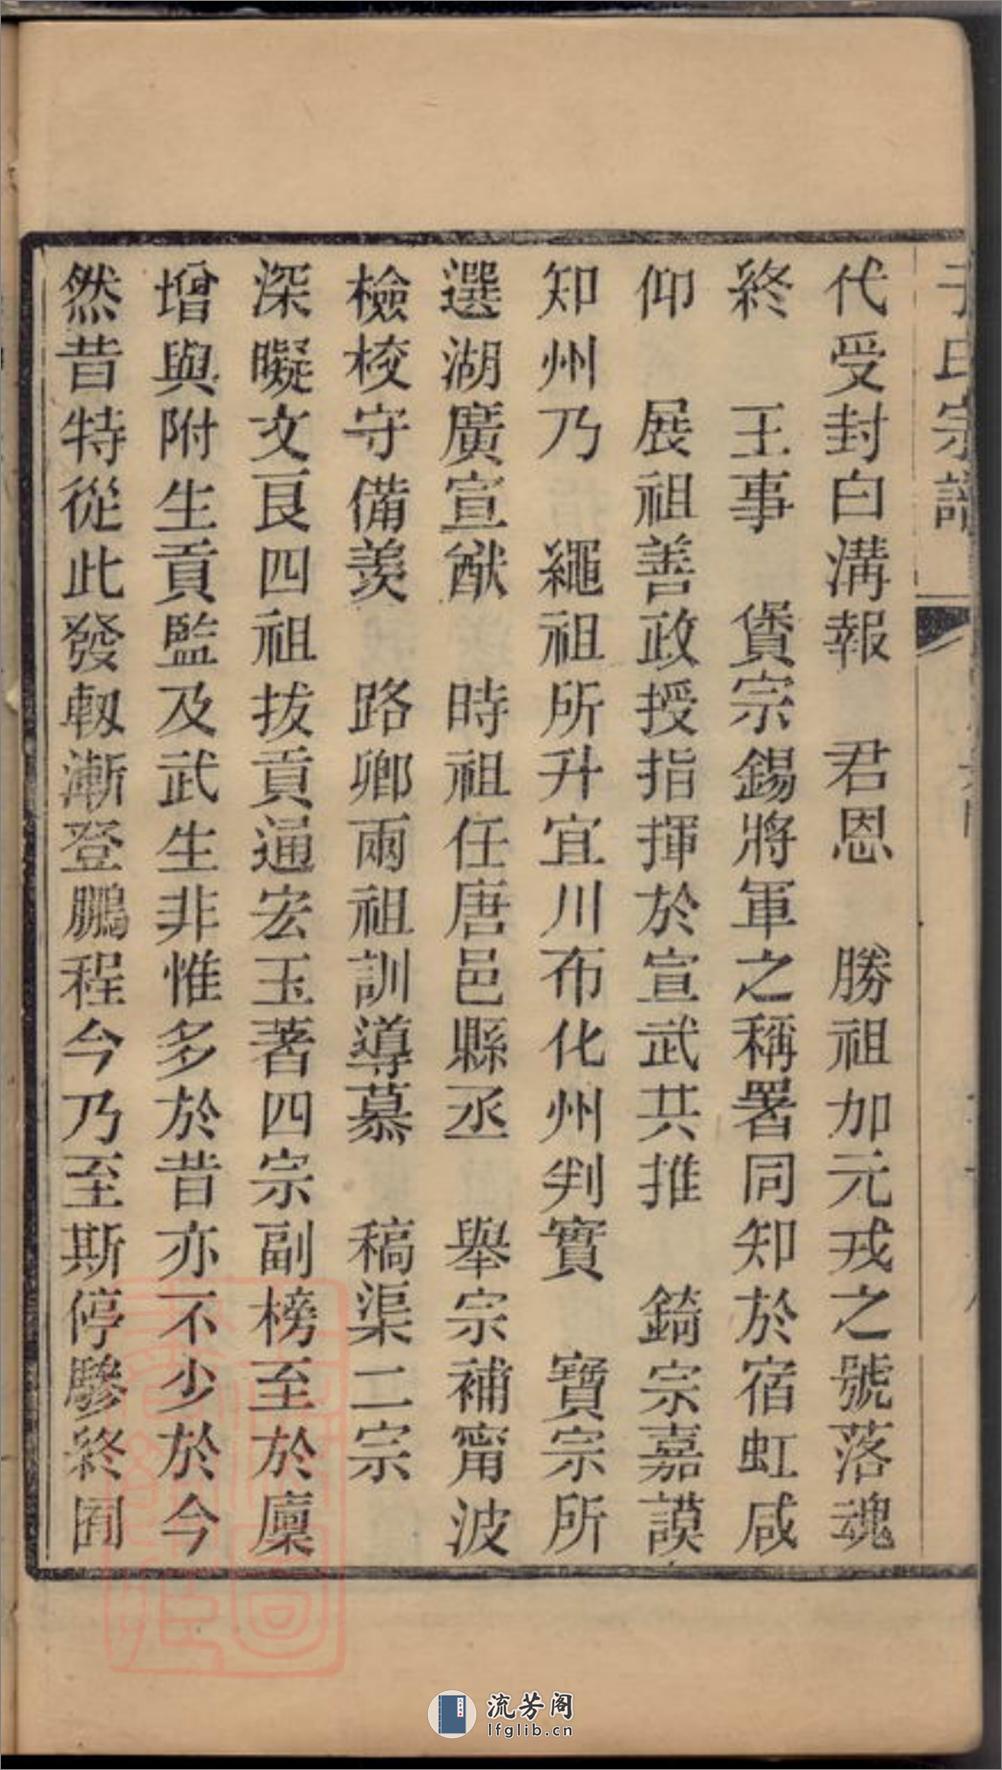 氏宗譜
代受封白溝報 君恩 勝祖加元戎之號落魂
終 王事 賡宗錫將軍之稱署同知於宿虹咸
仰 展祖善政授指揮於宣武共推 錡宗嘉謨
知州乃 繩祖所升宜川布化州判實 寶宗所
選湖廣宣猷 時祖任唐邑縣丞 舉宗補甯波
檢校守備羨 路卿兩祖訓導慕 稿渠二宗
深礙文艮四祖拔貢通宏玉著四宗副榜至於廩
增與附生貢監及武生非惟多於昔亦不少於今
然昔特從此發軔漸登鵬程今乃至斯停驂終囿
流芳阁
lfglib.cn